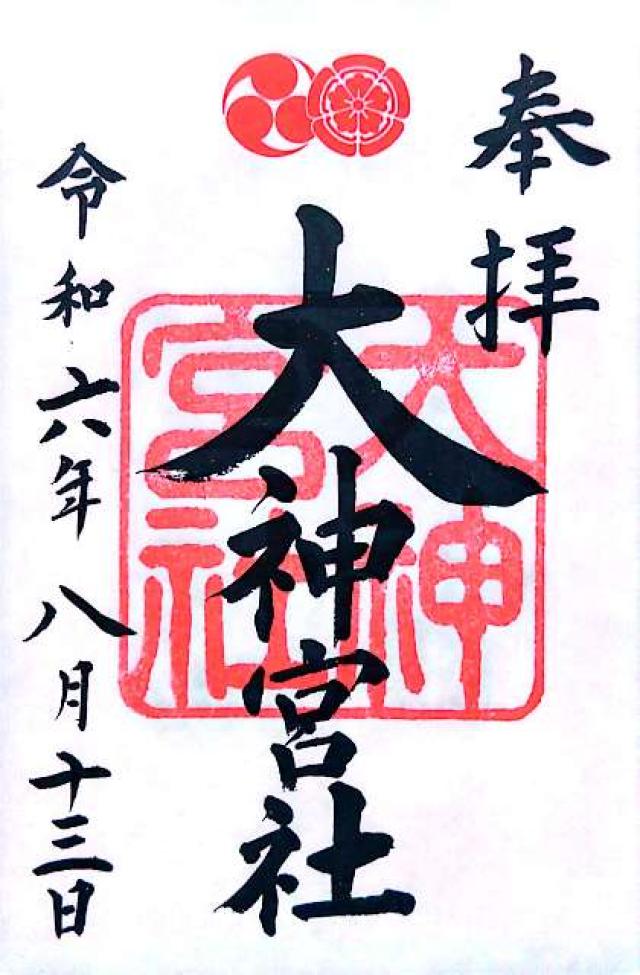 奉拝
大神宮社
大神宮社
令和六年八月十三日